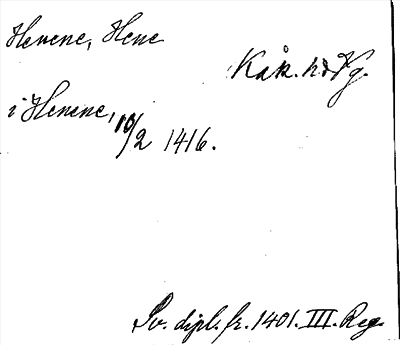 Henene, Hene
Kåk. hd Vg.
i Henene, 10/2 1416.
Sv. dipl. fr. 1401. III. Reg.